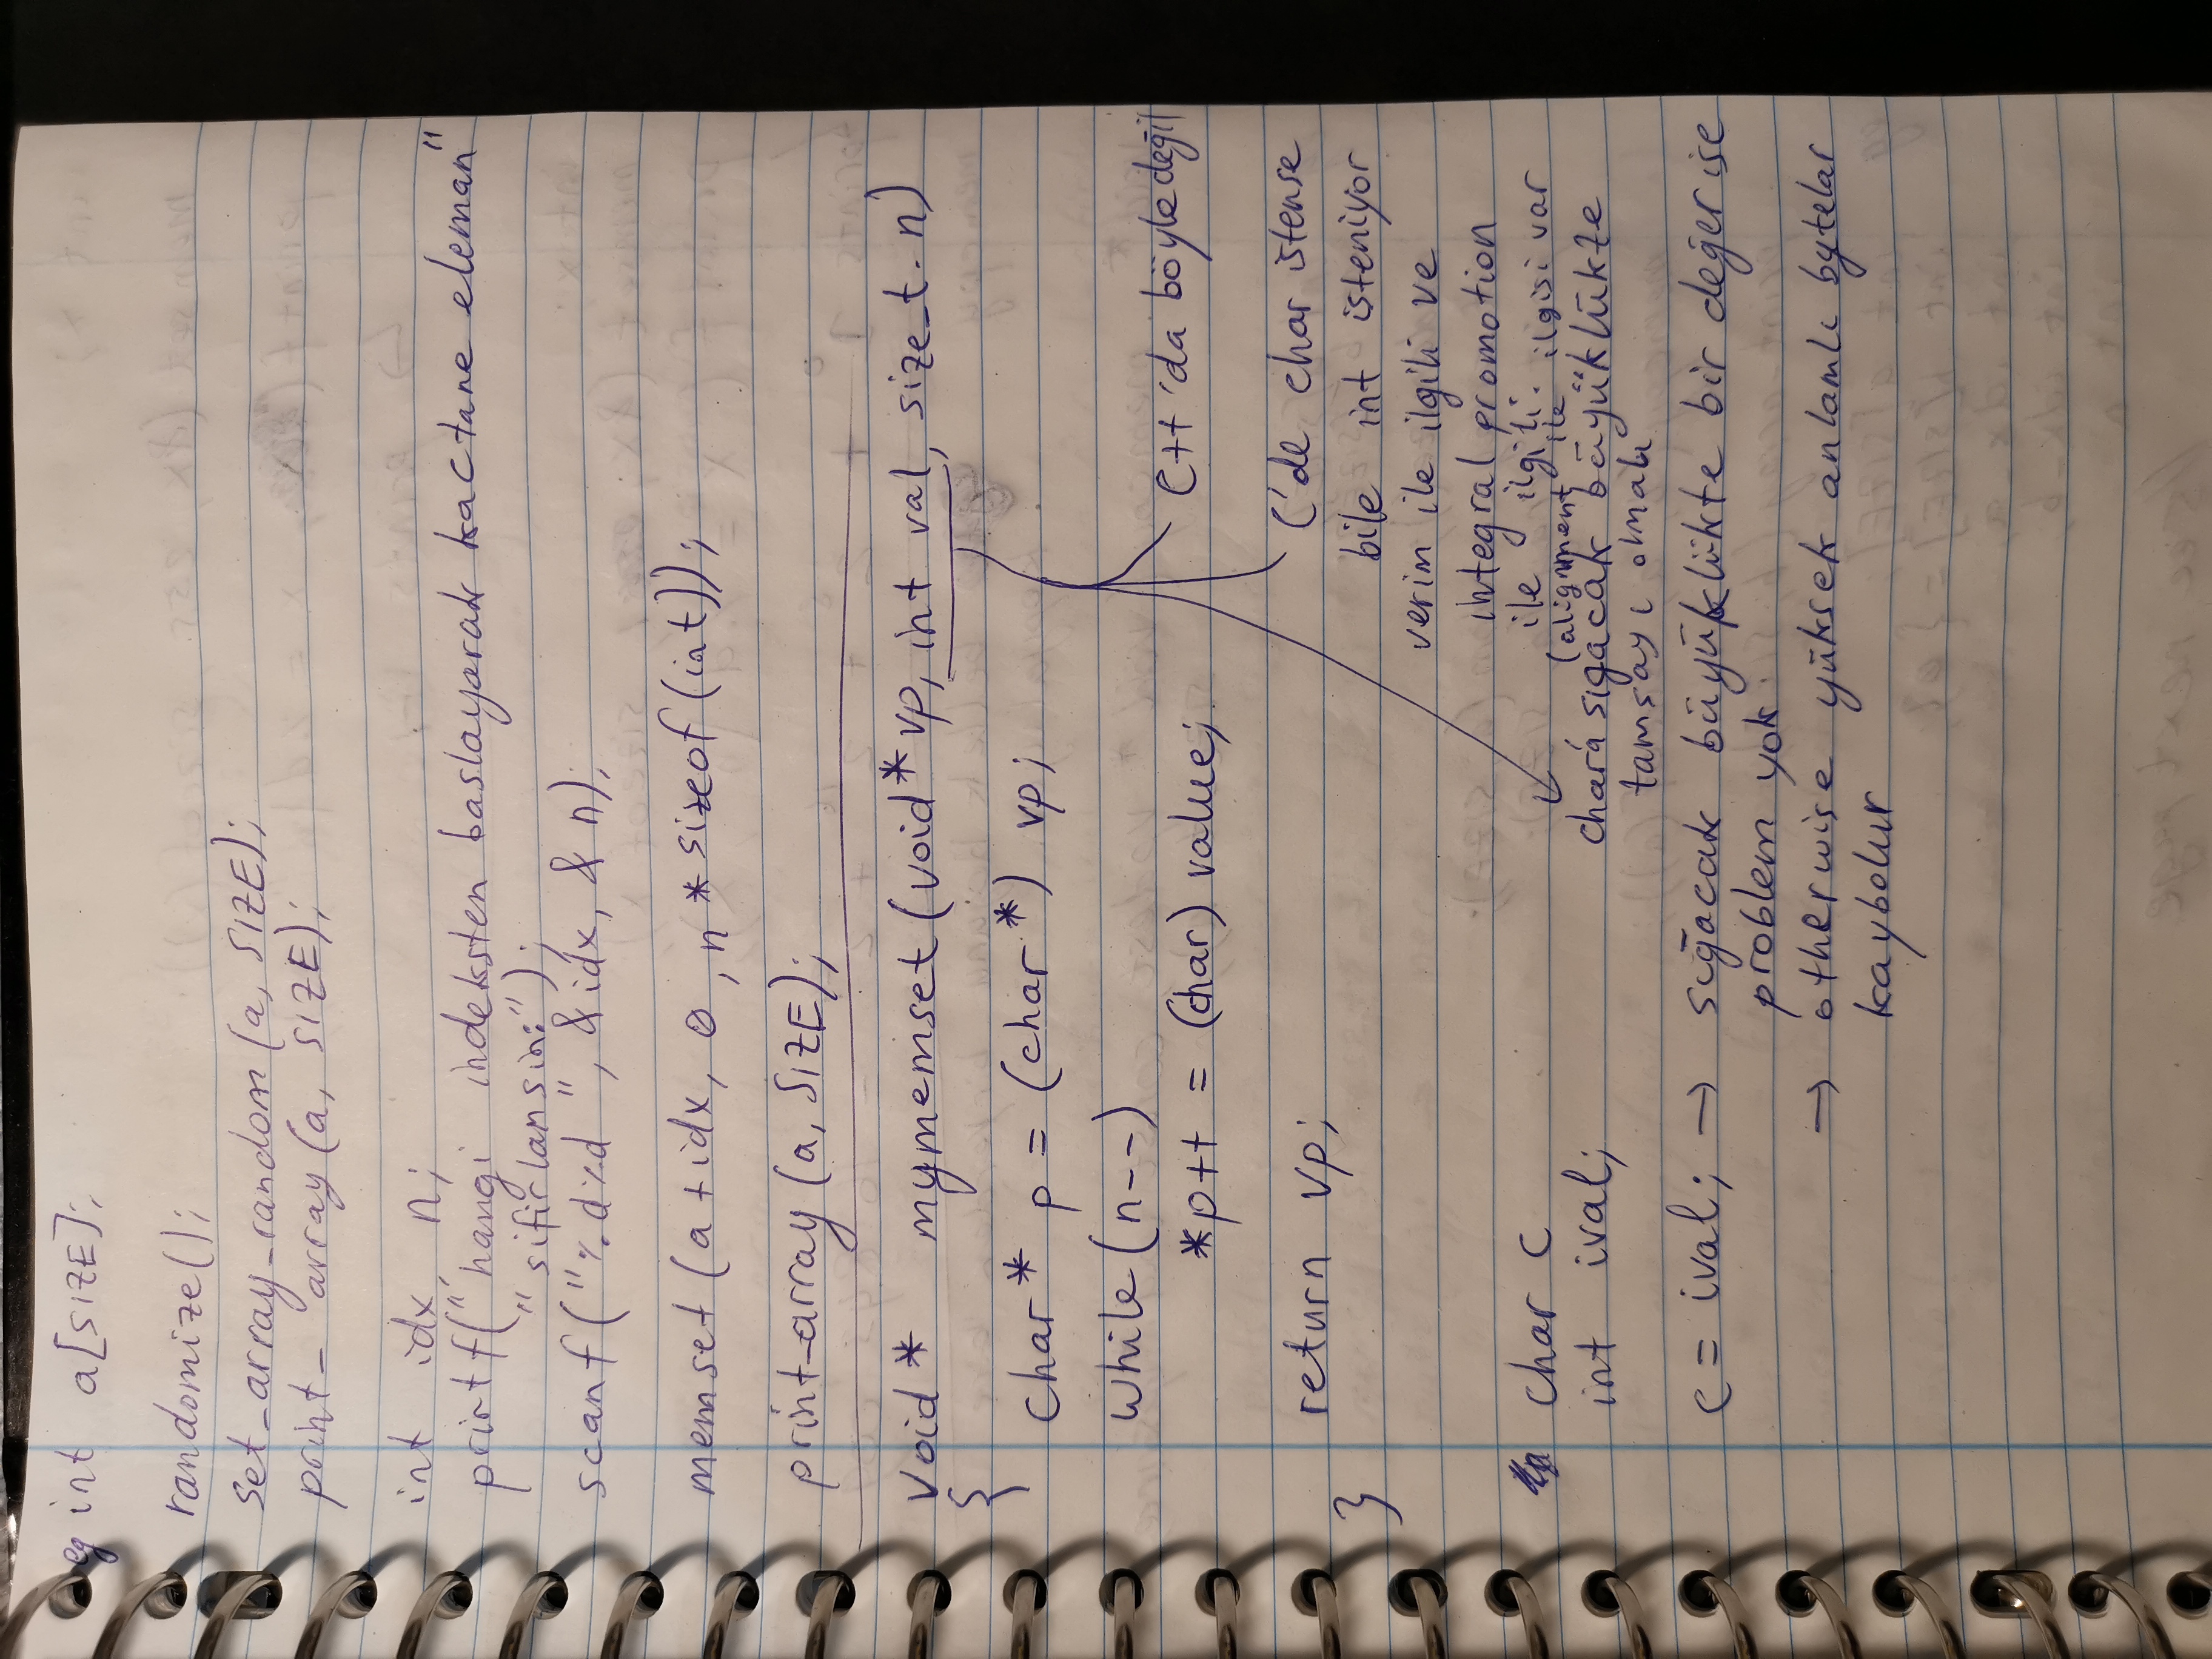 eg int a[SIZE];
randomize();
set_array_random(a, SIZE);
print_ array(a, SIZE);
int idx, n;
printf("hangi indeksten baslayarak kactane eleman"
"sifirlansin:");
scanf("%d%d ", &idx, & n);
memset(a+idx, 0, n*sizeof(int));
print_array(a, SIZE);
void* mymemset(void* vp, int val, size_t n)
{
char* p = (char*) vp;
while(n--)
C++'da böyle değil
*p++ = (char) value;
C'de char istense
return vp;
bile int isteniyor
}
verim ile ilgili ve
integral promotion
ile ilgili.
(alignment ile ilgisi var
char c
int ival;
char'a sıgacak büyüklükte
tamsayı olmalı
c = ival; → sığacak büyüklükte bir değer ise
problem yok
→ otherwise yüksek anlamlı bytelar
kaybolur